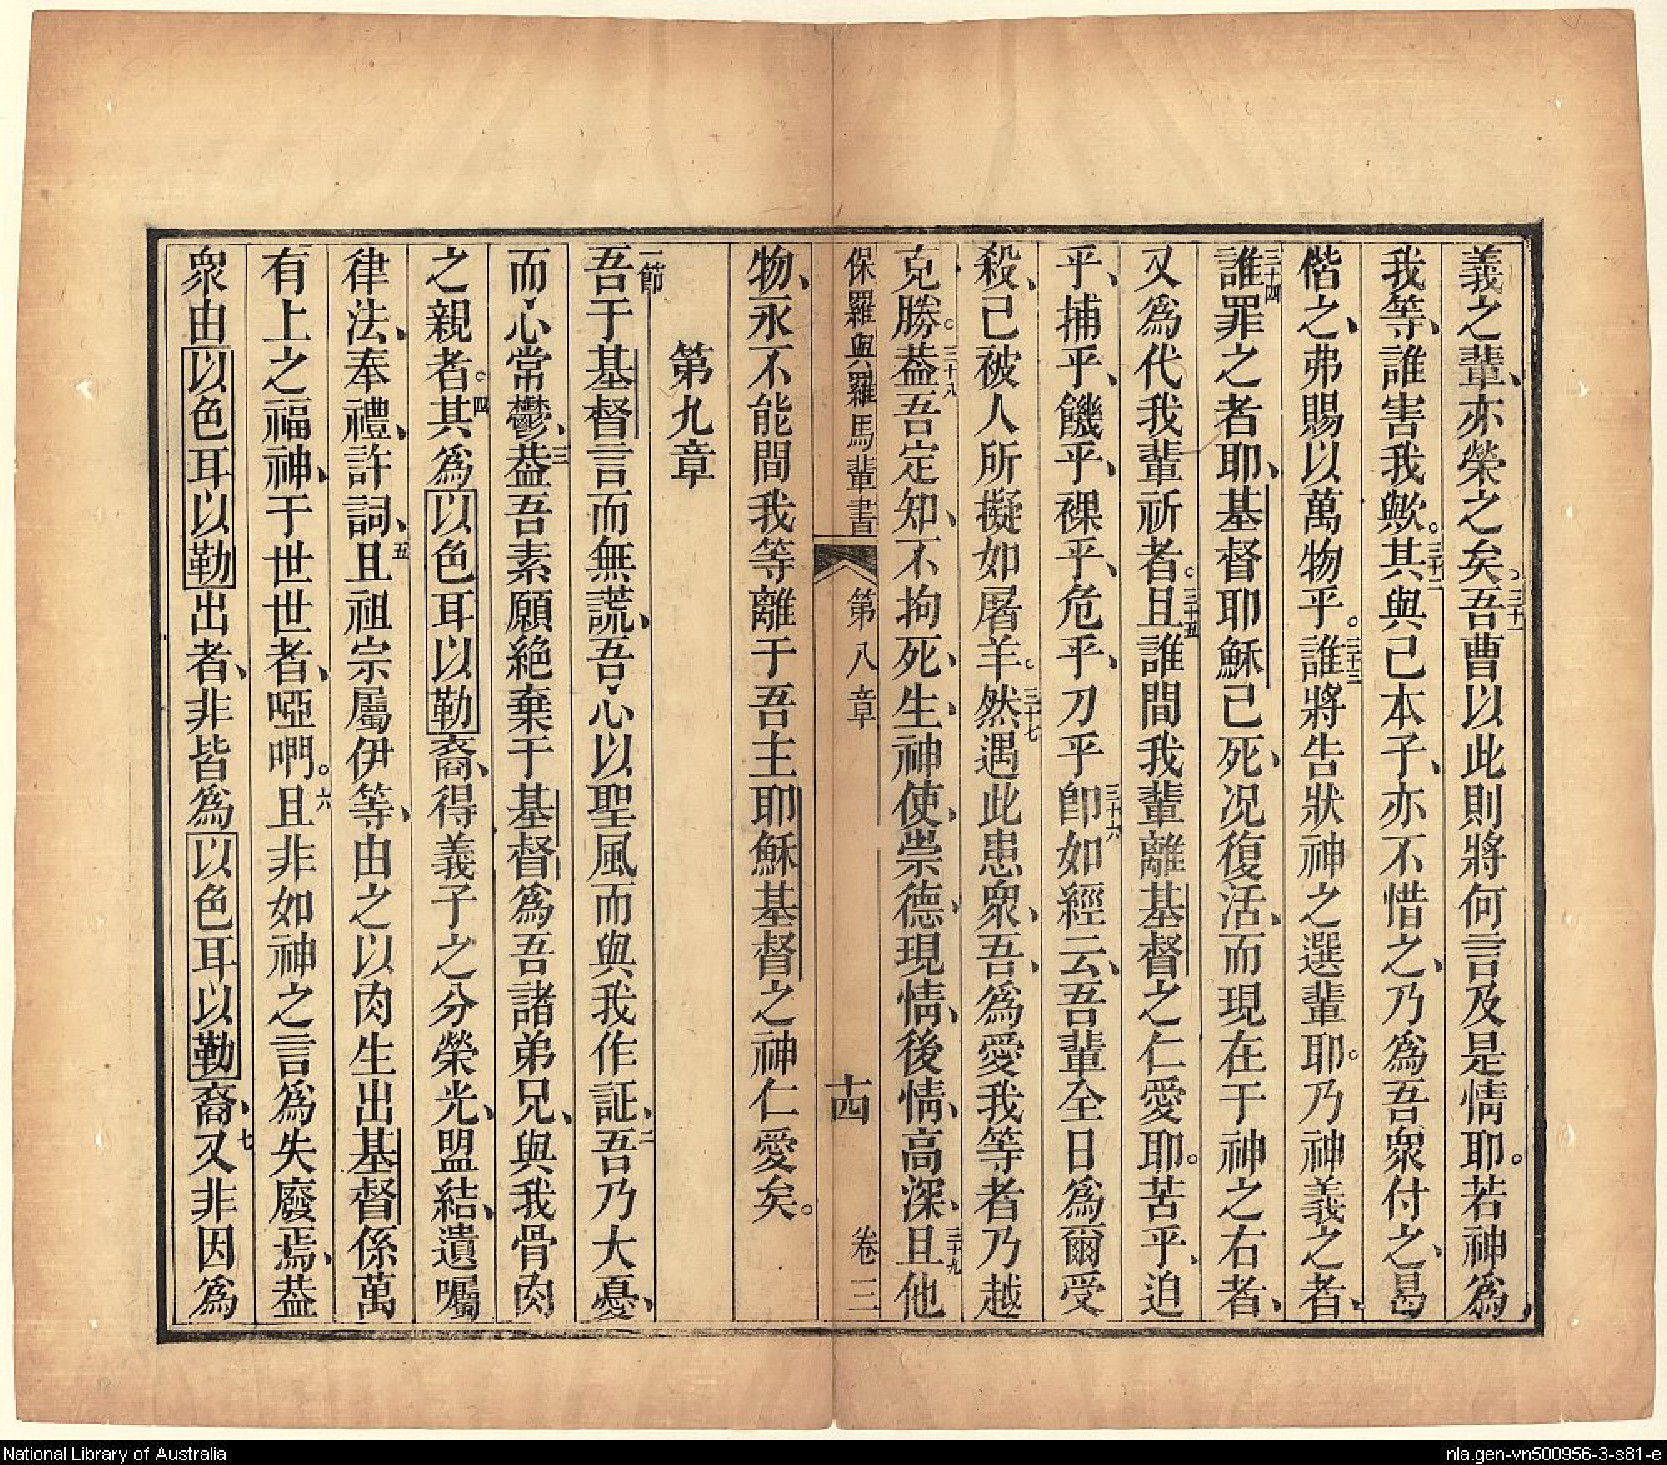 義之輩、亦榮之矣、三十一吾曹以此則將何言及是情耶。若神為
我等、誰害我歟。三十二其與己本子、亦不惜之、乃為吾衆付之、曷
偕之、弗賜以萬物乎。三十三誰將告狀神之選輩耶。乃神義之者、
三十四誰罪之者耶、基督耶穌已死、况復活、而現在于神之右者、
又為代我輩祈者。三十五且誰間我輩離基督之仁愛耶。苦乎、迫
乎、捕乎、饑乎、裸乎、危乎、刀乎三十六卽如經云、吾輩全日為爾受
殺、已被人所擬如屠羊。三十七然遇此患衆、吾為愛我等者乃越
克勝。三十八葢吾定知、不拘死、生、神使、崇德、現情、後情、高深、三十九且他
保羅與羅馬輩書 第八章 十四 卷三
物、永不能間我等離于吾主耶穌基督之神仁愛矣。
第九章
一節吾于基督言而無謊、吾心以聖風而與我作証、二吾乃大憂、
而心常鬱、三葢吾素願絕棄于基督為吾諸弟兄、與我骨肉
之親者。四其為以色耳以勒裔、得義子之分榮光、盟結、遺囑
律法、奉禮、許詞、五且祖宗屬伊等、由之以肉生出基督係萬
有上之福神、于世世者、啞啊。六且非如神之言為失廢焉、葢
衆由以色耳以勒出者、非皆為以色耳以勒裔、七又非因為
National Library of Australia
nla.gen-vn500956-3-s81-e